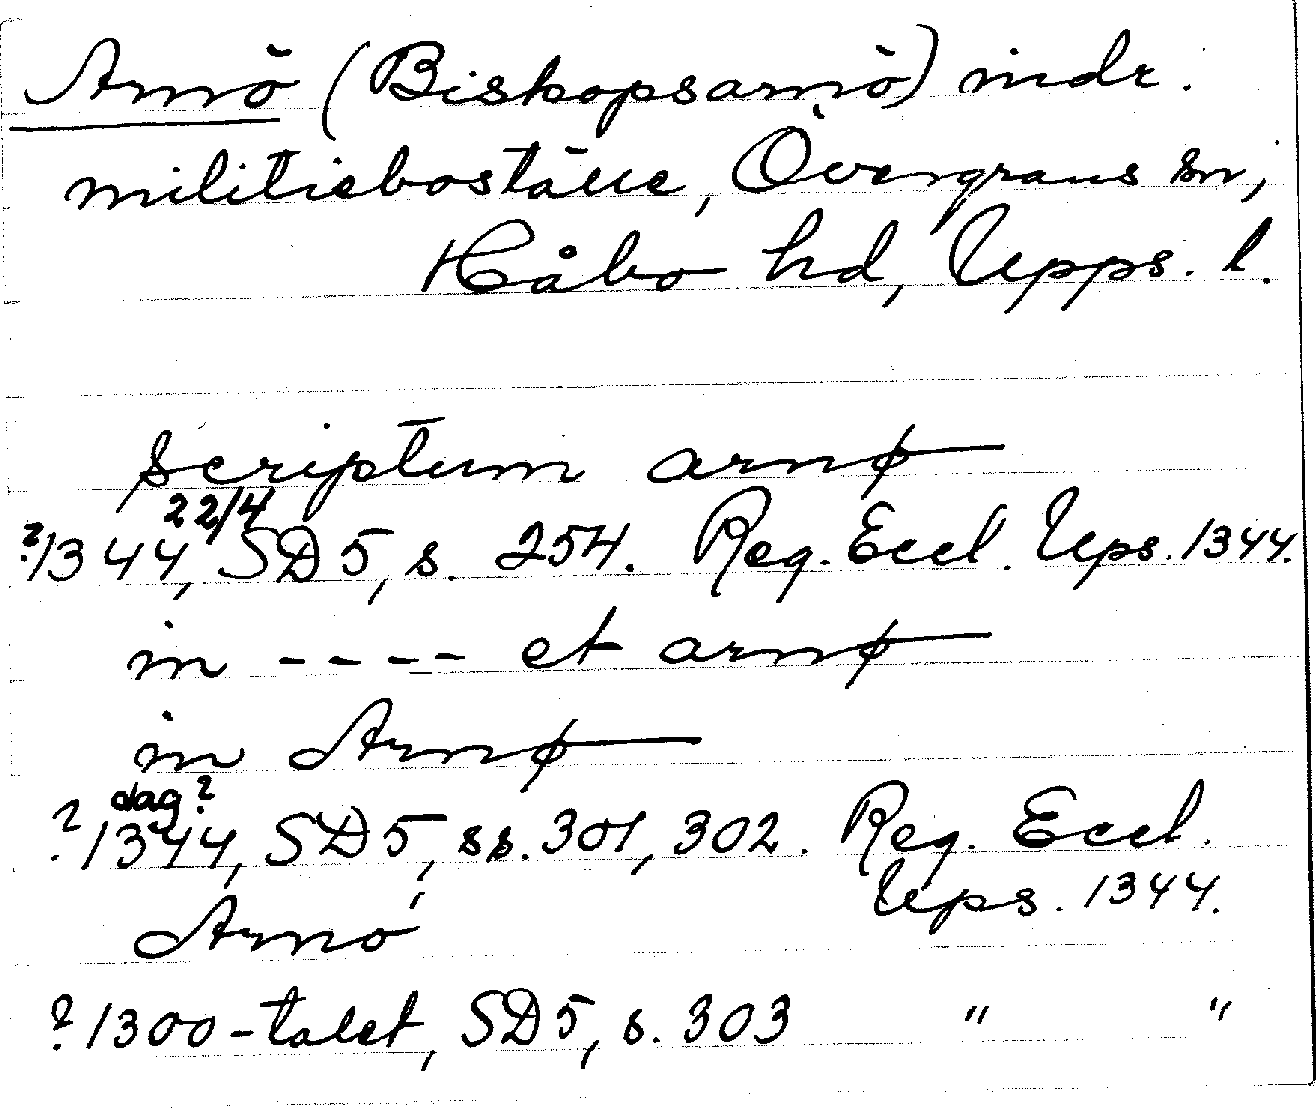 Arnö (Biskopsarnö) indr.
militieboställe, Övergrans sn,
Håbo hd, Upps. l.
scriptum arnø
22/4
?1344, SD 5, s. 254. Reg. Eccl. Ups. 1344.
in ---- et arnø
in Arnø
dag?
?1344, SD 5, ss. 301, 302. Reg. Eccl.
Ups. 1344.
Arnó
?1300-talet, SD 5, s. 303 " "